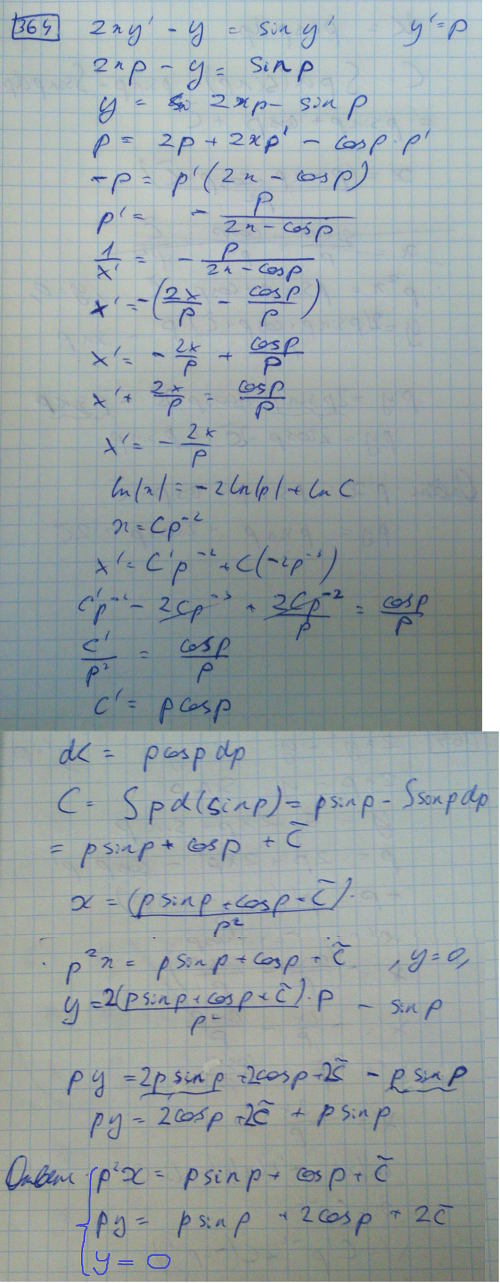 364 2xy' - y = sin y' y' = p
2xp - y = sin p
y = 2xp - sin p
p = 2p + 2xp' - cosp · p'
-p = p'(2x - cosp)
p' = - p/(2x - cosp)
1/x' = - p/(2x - cosp)
x' = -(2x/p - cosp/p)
x' = - 2x/p + cosp/p
x' + 2x/p = cosp/p
x' = - 2x/p
ln|x| = -2ln|p| + ln C
x = Cp⁻²
x' = C'p⁻² + C(-2p⁻³)
C'p⁻² - 2Cp⁻³ + 2Cp⁻²/p = cosp/p
C'/p² = cosp/p
C' = p cosp
dC = p cosp dp
C = ∫ p d(sinp) = p sinp - ∫ sinp dp
= p sinp + cosp + C̃
x = (p sinp + cosp + C̃)/p² .
p²x = p sinp + cosp + C̃ , y = 0,
y = 2(p sinp + cosp + C̃) · p/p² - sin p
py = 2p sinp + 2cosp + 2C̃ - p sinp
py = 2cosp + 2C̃ + p sinp
Ответ: { p²x = p sinp + cosp + C̃
py = p sinp + 2cosp + 2C̃
y = 0